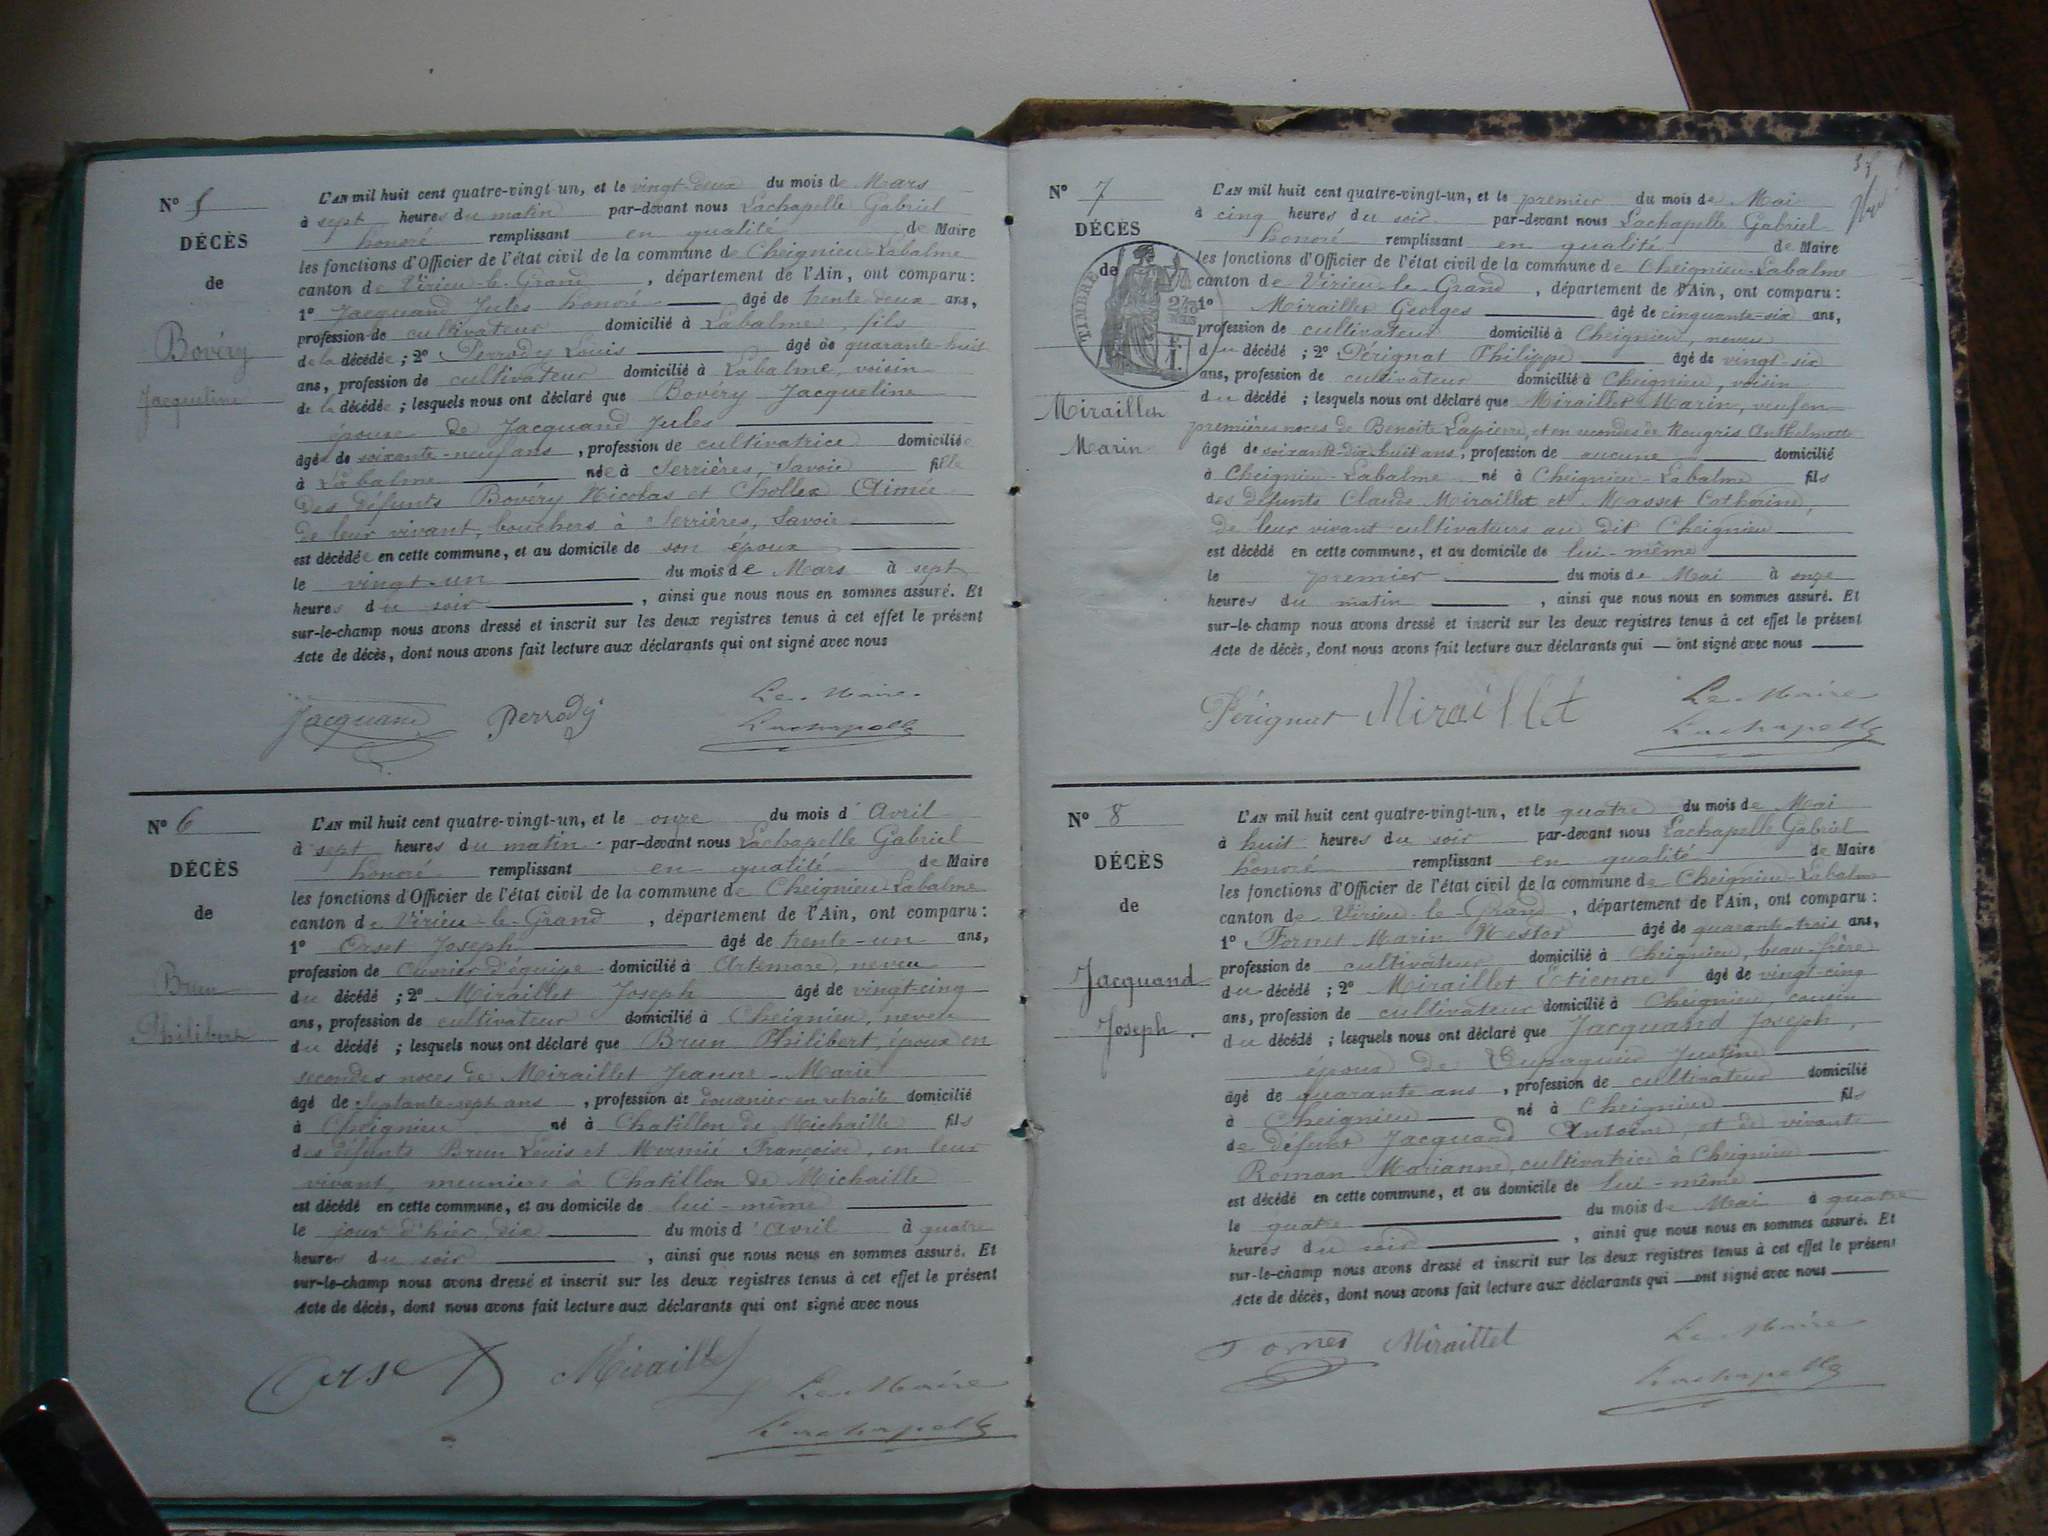 N° 5
DÉCÈS
de
Bovéry
Jacqueline
L'AN mil huit cent quatre-vingt-un, et le vingt-deux du mois de Mars
à sept heures du matin par-devant nous Lachapelle Gabriel
honoré remplissant en qualité de Maire
les fonctions d'Officier de l'état civil de la commune de Cheignieu-Labalme
canton de Virieu-le-Grand, département de l'Ain, ont comparu :
1° Jacquand Jules honoré âgé de trente deux ans,
profession de cultivateur domicilié à Labalme, fils
de la décédée ; 2° Perrody Louis âgé de quarante-huit
ans, profession de cultivateur domicilié à Labalme, voisin
de la décédée ; lesquels nous ont déclaré que Bovéry Jacqueline
épouse de Jacquand Jules
âgée de soixante-neuf ans, profession de cultivatrice domiciliée
à Labalme née à Serrières, Savoie fille
des défunts Bovéry Nicolas et Chollex Aimée
de leur vivant, bouchers à Serrières, Savoie
est décédée en cette commune, et au domicile de son époux
le vingt-un du mois de Mars à sept
heures du soir, ainsi que nous nous en sommes assuré. Et
sur-le-champ nous avons dressé et inscrit sur les deux registres tenus à cet effet le présent
Acte de décès, dont nous avons fait lecture aux déclarants qui ont signé avec nous
Jacquand Perrody Le Maire
Lachapelle
N° 6
DÉCÈS
de
Brun
Philibert
L'AN mil huit cent quatre-vingt-un, et le onze du mois d'Avril
à sept heures du matin par-devant nous Lachapelle Gabriel
honoré remplissant en qualité de Maire
les fonctions d'Officier de l'état civil de la commune de Cheignieu-Labalme
canton de Virieu-le-Grand, département de l'Ain, ont comparu :
1° Orset Joseph âgé de trente-un ans,
profession de ouvrier d'équipe domicilié à Artemare, neveu
du décédé ; 2° Miraillet Joseph âgé de vingt-cinq
ans, profession de cultivateur domicilié à Cheignieu, neveu
du décédé ; lesquels nous ont déclaré que Brun Philibert, époux en
secondes noces de Miraillet Jeanne-Marie
âgé de septante-sept ans, profession de douanier en retraite domicilié
à Cheignieu né à Chatillon de Michaille fils
des défunts Brun Louis et Mermié Françoise, en leur
vivant, meuniers à Chatillon de Michaille
est décédé en cette commune, et au domicile de lui-même
le jour d'hier, dix du mois d'Avril à quatre
heures du soir, ainsi que nous nous en sommes assuré. Et
sur-le-champ nous avons dressé et inscrit sur les deux registres tenus à cet effet le présent
Acte de décès, dont nous avons fait lecture aux déclarants qui ont signé avec nous
Orset Miraillet Le Maire
Lachapelle
N° 7
DÉCÈS
de
TIMBRE
Miraillet
Marin
L'AN mil huit cent quatre-vingt-un, et le premier du mois de Mai
à cinq heures du soir par-devant nous Lachapelle Gabriel
honoré remplissant en qualité de Maire
les fonctions d'Officier de l'état civil de la commune de Cheignieu-Labalme
canton de Virieu-le-Grand, département de l'Ain, ont comparu :
1° Miraillet Georges âgé de cinquante-six ans,
profession de cultivateur domicilié à Cheignieu, neveu
du décédé ; 2° Pérignat Philippe âgé de vingt-six
ans, profession de cultivateur domicilié à Cheignieu, voisin
du décédé ; lesquels nous ont déclaré que Miraillet Marin, veuf en
premières noces de Benoite Lapierre, et en secondes de Rougris Anthelmette
âgé de soixante-dix-huit ans, profession de aucune domicilié
à Cheignieu-Labalme né à Cheignieu-Labalme fils
des défunts Claude Miraillet et Masset Catherine,
de leur vivant cultivateurs au dit Cheignieu
est décédé en cette commune, et au domicile de lui-même
le premier du mois de Mai à onze
heures du matin, ainsi que nous nous en sommes assuré. Et
sur-le-champ nous avons dressé et inscrit sur les deux registres tenus à cet effet le présent
Acte de décès, dont nous avons fait lecture aux déclarants qui — ont signé avec nous
Pérignat Miraillet Le Maire
Lachapelle
N° 8
DÉCÈS
de
Jacquand
Joseph.
L'AN mil huit cent quatre-vingt-un, et le quatre du mois de Mai
à huit heures du soir par-devant nous Lachapelle Gabriel
honoré remplissant en qualité de Maire
les fonctions d'Officier de l'état civil de la commune de Cheignieu-Labalme
canton de Virieu-le-Grand, département de l'Ain, ont comparu :
1° Fornet Marin Nestor âgé de quarante-trois ans,
profession de cultivateur domicilié à Cheignieu, beau-frère
du décédé ; 2° Miraillet Etienne âgé de vingt-cinq
ans, profession de cultivateur domicilié à Cheignieu, cousin
du décédé ; lesquels nous ont déclaré que Jacquand Joseph,
époux de Justine
âgé de quarante ans, profession de cultivateur domicilié
à Cheignieu né à Cheignieu fils
de défunt Jacquand Antoine, et de vivante
Roman Marianne, cultivatrice à Cheignieu
est décédé en cette commune, et au domicile de lui-même
le quatre du mois de Mai à quatre
heures du soir, ainsi que nous nous en sommes assuré. Et
sur-le-champ nous avons dressé et inscrit sur les deux registres tenus à cet effet le présent
Acte de décès, dont nous avons fait lecture aux déclarants qui — ont signé avec nous
Fornet Miraillet Le Maire
Lachapelle